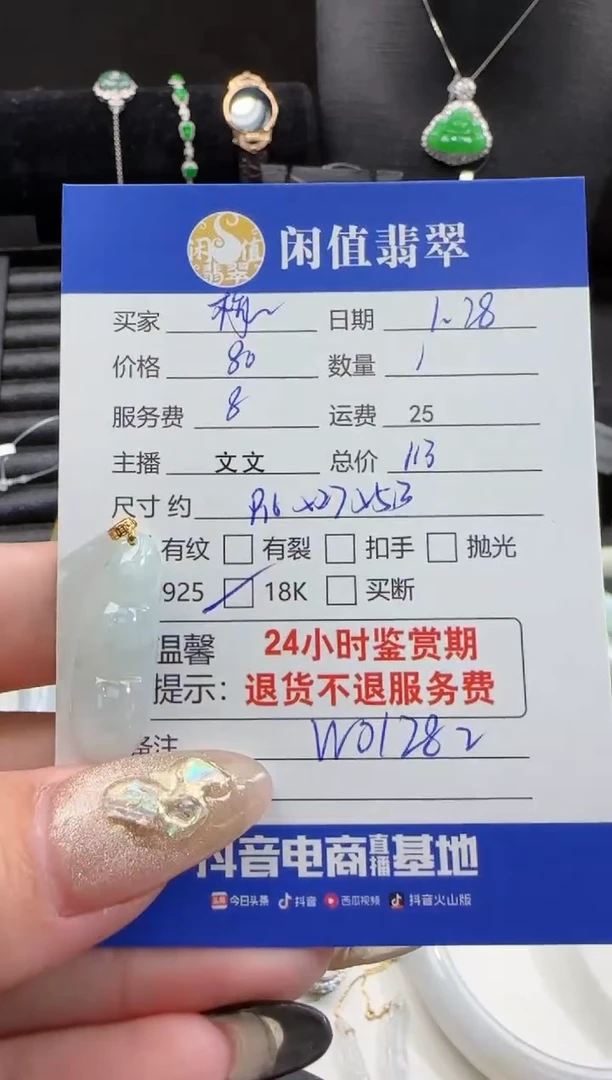 闲值翡翠
闲值翡翠
买家 日期 1-28
价格 80 数量 1
服务费 8 运费 25
主播 文文 总价 113
尺寸 约
有纹 有裂 扣手 抛光
925 18K 买断
温馨 24小时鉴赏期
提示: 退货不退服务费
备注 W01282
抖音电商直播基地
头条 今日头条 抖音 西瓜视频 抖音火山版